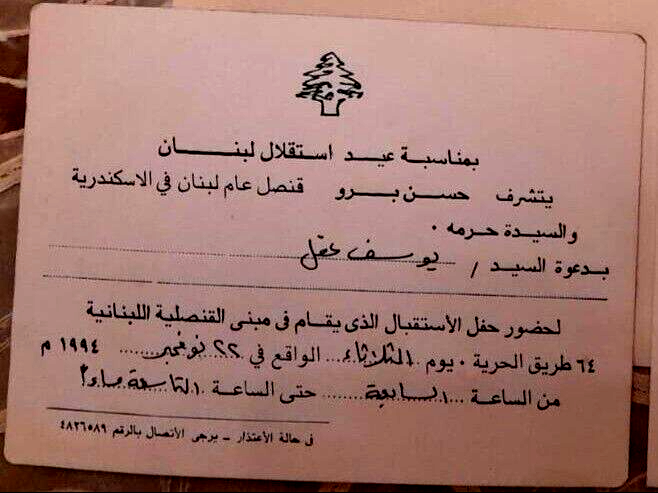 بمناسبة عيد استقلال لبنان
يتشرف حسن برو قنصل عام لبنان في الاسكندرية
والسيدة حرمه .
بدعوة السيد / يوسف عقل
لحضور حفل الأستقبال الذى يقام فى مبنى القنصلية اللبنانية
٦٤ طريق الحرية . يوم الثلاثاء الواقع في ٢٢ نوفمبر ١٩٩٤ م
من الساعة السابعة حتى الساعة التاسعة مساءً
فى حالة الأعتذار – يرجى الأتصال بالرقم ٤٨٣٦٥٨٩